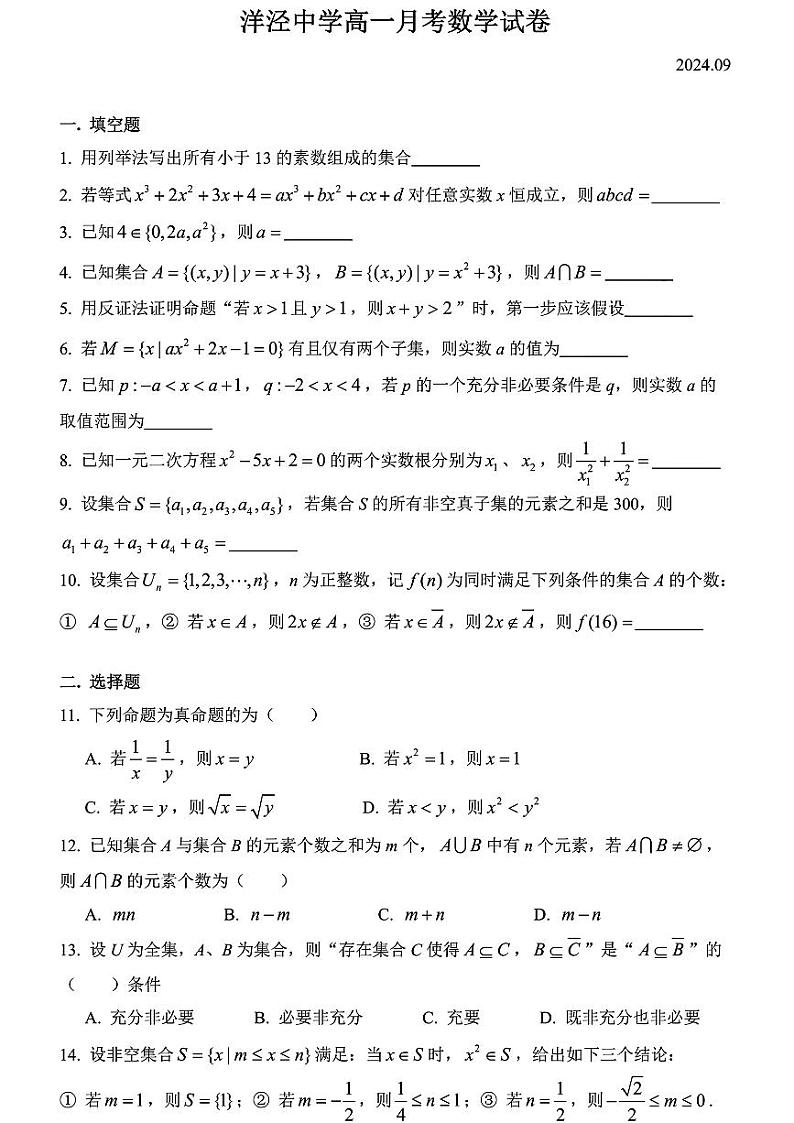 洋泾中学高一月考数学试卷
2024.09
一. 填空题
1. 用列举法写出所有小于 13 的素数组成的集合________
2. 若等式 x³ + 2x² + 3x + 4 = ax³ + bx² + cx + d 对任意实数 x 恒成立，则 abcd = ________
3. 已知 4 ∈ {0, 2a, a²}，则 a = ________
4. 已知集合 A = {(x, y) | y = x + 3}，B = {(x, y) | y = x² + 3}，则 A⋂B = ________
5. 用反证法证明命题“若 x > 1 且 y > 1，则 x + y > 2”时，第一步应该假设________
6. 若 M = {x | ax² + 2x − 1 = 0} 有且仅有两个子集，则实数 a 的值为________
7. 已知 p : −a < x < a + 1，q : −2 < x < 4，若 p 的一个充分非必要条件是 q，则实数 a 的
取值范围为________
8. 已知一元二次方程 x² − 5x + 2 = 0 的两个实数根分别为 x₁、x₂，则 1/x₁² + 1/x₂² = ________
9. 设集合 S = {a₁, a₂, a₃, a₄, a₅}，若集合 S 的所有非空真子集的元素之和是 300，则
a₁ + a₂ + a₃ + a₄ + a₅ = ________
10. 设集合 Uₙ = {1, 2, 3, ⋯, n}，n 为正整数，记 f(n) 为同时满足下列条件的集合 A 的个数：
① A ⊆ Uₙ，② 若 x ∈ A，则 2x ∉ A，③ 若 x ∈ A̅，则 2x ∉ A̅，则 f(16) = ________
二. 选择题
11. 下列命题为真命题的为（　　）
A. 若 1/x = 1/y，则 x = y B. 若 x² = 1，则 x = 1
C. 若 x = y，则 √x = √y D. 若 x < y，则 x² < y²
12. 已知集合 A 与集合 B 的元素个数之和为 m 个，A⋃B 中有 n 个元素，若 A⋂B ≠ ∅，
则 A⋂B 的元素个数为（　　）
A. mn B. n − m C. m + n D. m − n
13. 设 U 为全集，A、B 为集合，则“存在集合 C 使得 A ⊆ C，B ⊆ C̅”是“A ⊆ B̅”的
（　　）条件
A. 充分非必要 B. 必要非充分 C. 充要 D. 既非充分也非必要
14. 设非空集合 S = {x | m ≤ x ≤ n} 满足：当 x ∈ S 时，x² ∈ S，给出如下三个结论：
① 若 m = 1，则 S = {1}；② 若 m = −1/2，则 1/4 ≤ n ≤ 1；③ 若 n = 1/2，则 −√2/2 ≤ m ≤ 0.